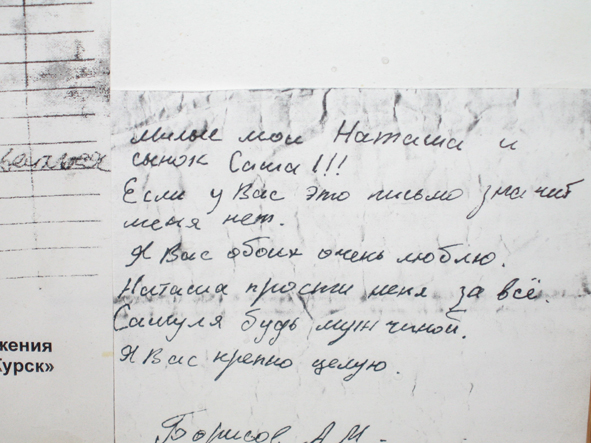 жения
Курск»
милые мои Наташа и
сынок Саша!!!
Если у Вас это письмо значит
меня нет.
Я Вас обоих очень люблю.
Наташа прости меня за всё.
Сашуля будь мужчиной.
Я Вас крепко целую.
Борисов А.М.